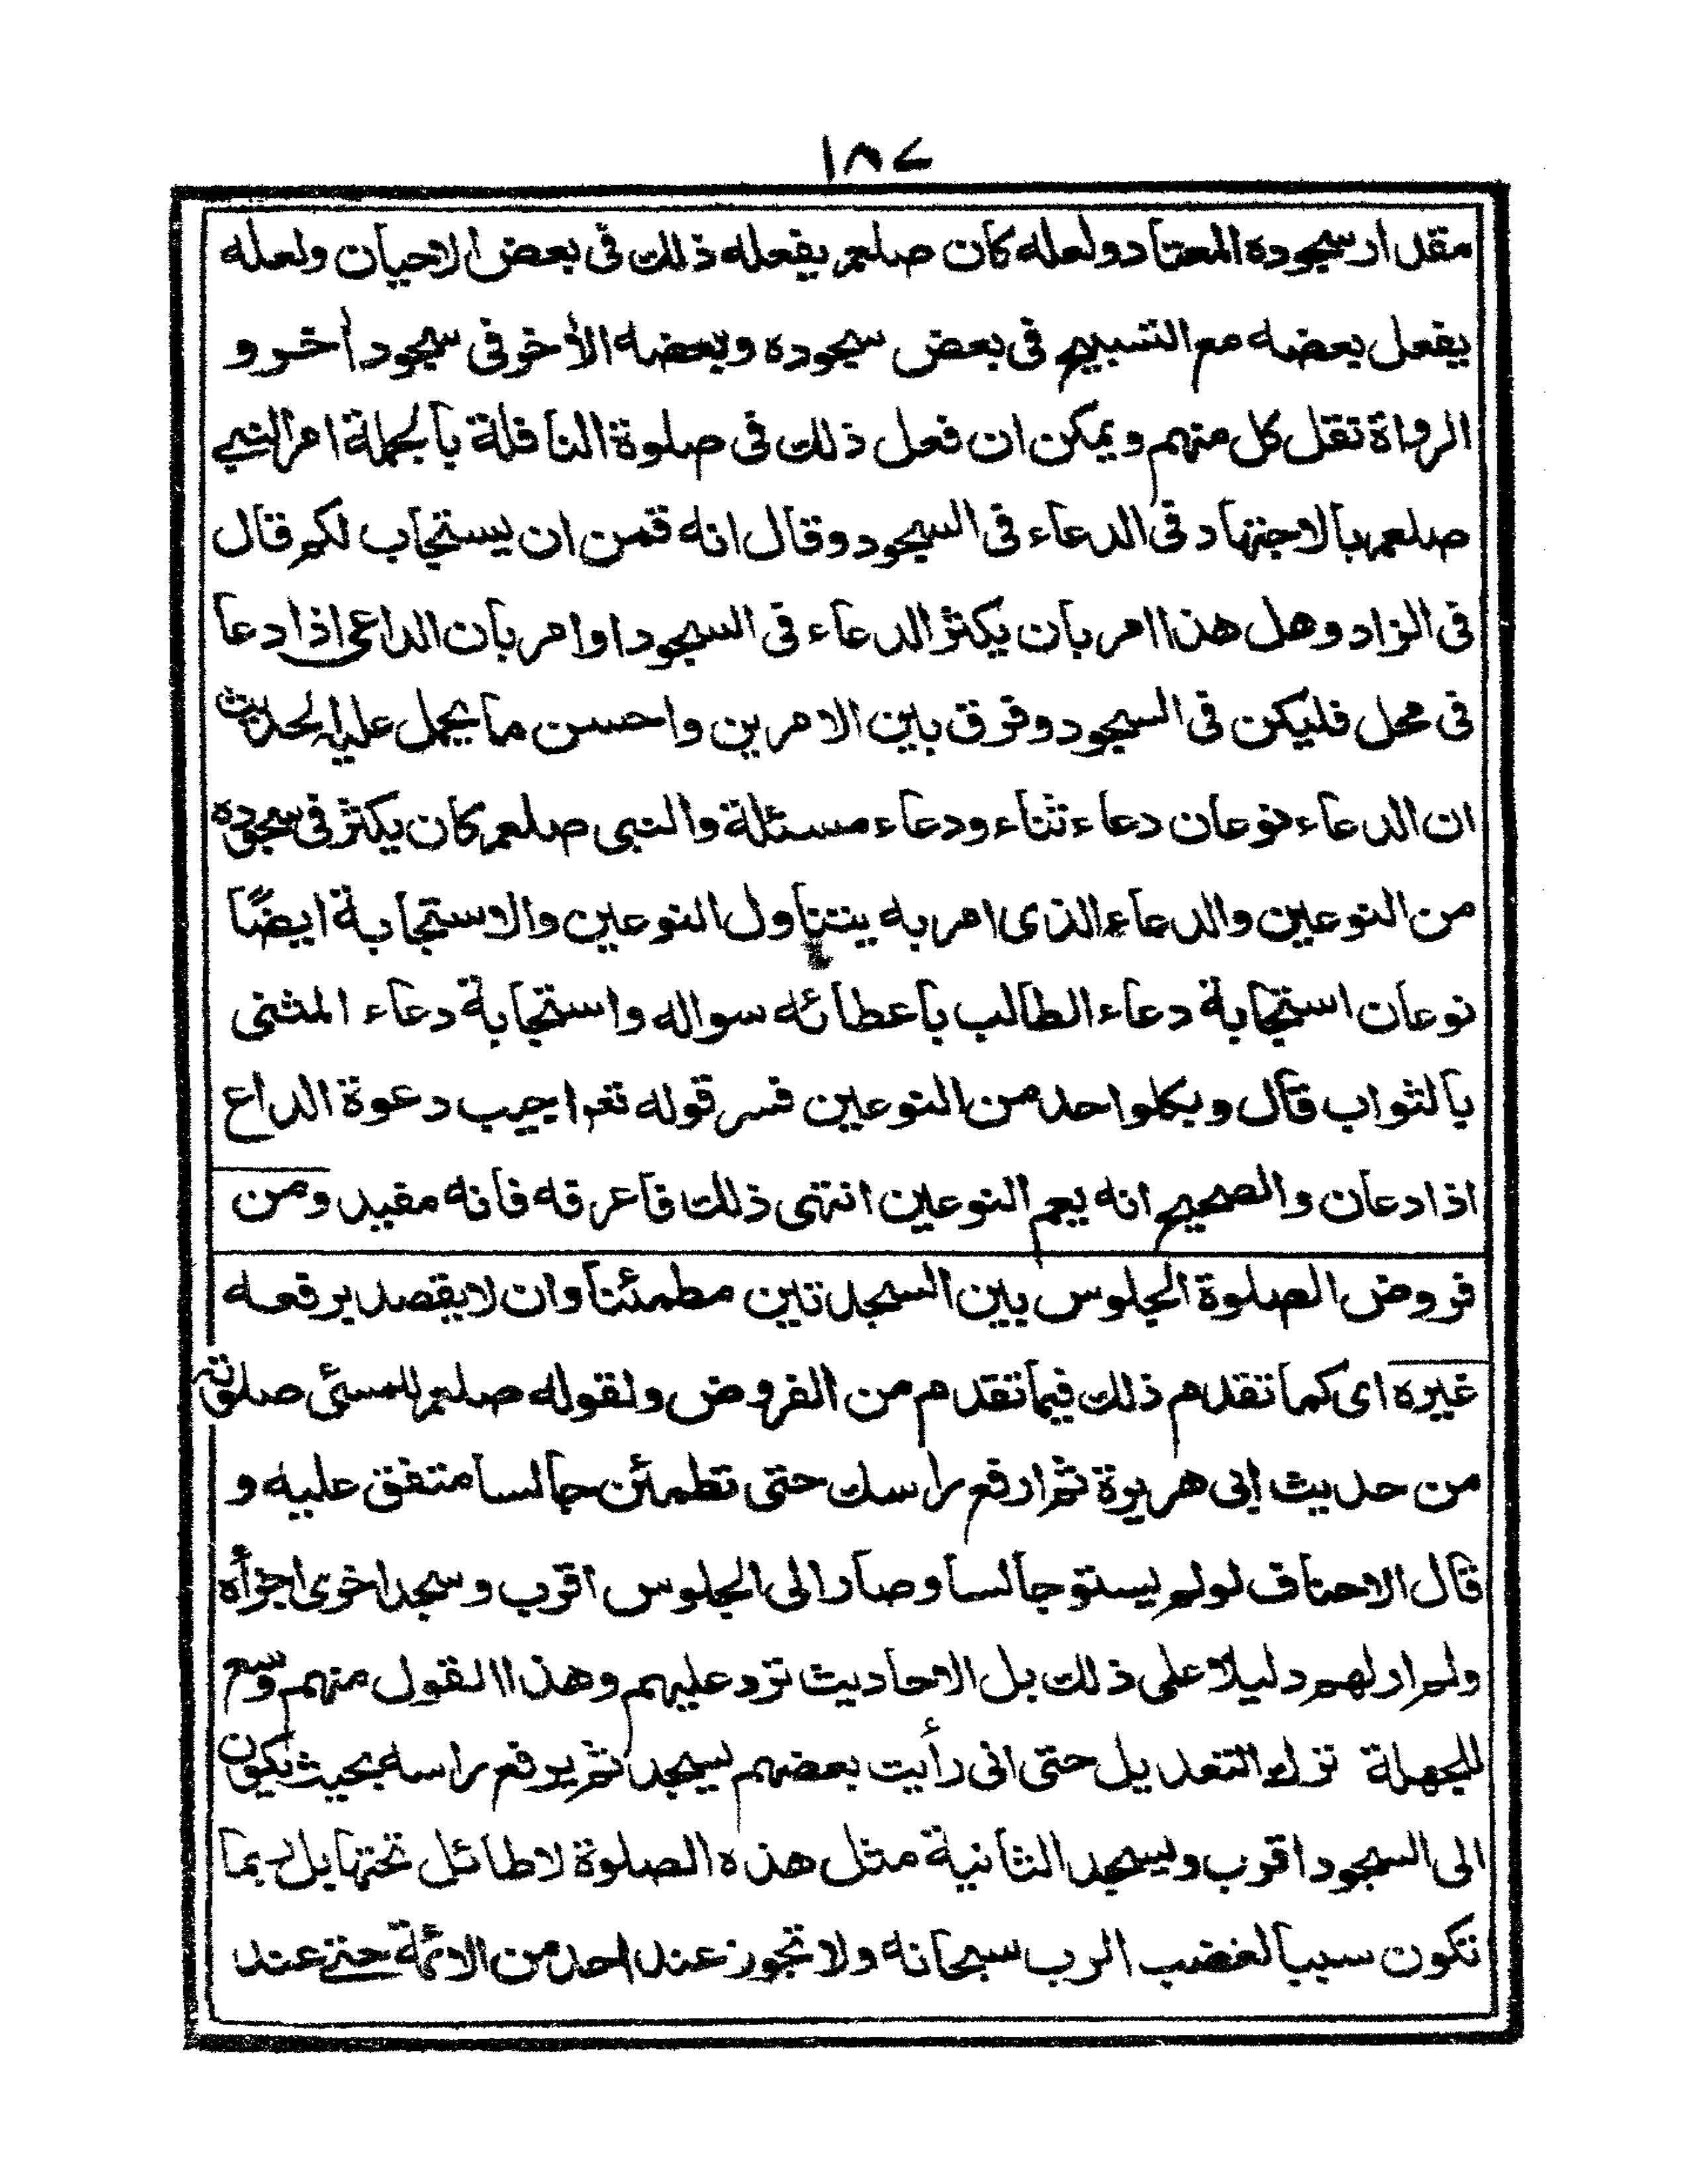 ١٨٧
مقدار سجوده المعتاد ولعله كان صلعم يفعله ذلك فى بعض الاحيان ولعله
يفعل بعضه مع التسبيح فى بعض سجوده وبعضه الأخر فى سجود أخر و
الرواة نقل كل منهم ويمكن ان فعل ذلك فى صلوة النافلة بالجملة امر النبى
صلعم بالاجتهاد فى الدعاء فى السجود وقال انه قمن ان يستجاب لكم قال
فى الزاد وهل هذا امر بان يكثر الدعاء فى السجود او امر بان الداعى اذا دعا
فى محل فليكن فى السجود وفرق باين الامرين واحسن ما يحمل عليه الحديث
ان الدعاء نوعان دعاء ثناء ودعاء مسئلة والنبى صلعم كان يكثر فى سجوده
من النوعين والدعاء الذى امر به يتناول النوعين والاستجابة ايضًا
نوعان استجابة دعاء الطالب باعطائه سواله واستجابة دعاء المثنى
بالثواب قال وبكلواحد من النوعين فسر قوله تعم اجيب دعوة الداع
اذا دعان والصحيح انه يعم النوعين انتهى ذلك فاعرفه فانه مفيد ومن
فروض الصلوة الجلوس بين السجدتين مطمئنا وان لا يقصد برفعه
غيره اى كما تقدم ذلك فيما تقدم من الفروض ولقوله صلعم للمسئى صلوته
من حديث ابى هريرة ثم ارفع راسك حتى تطمئن جالسا متفق عليه و
قال الاحناف لو لم يستو جالسا وصار الى الجلوس اقرب وسجد اخرى اجزأه
ولم ار لهم دليلا على ذلك بل الاحاديث ترد عليهم وهذا القول منهم وسع
للجهلة ترك التعديل حتى انى رأيت بعضهم يسجد ثم يرفع راسه بحيث يكون
الى السجود اقرب ويسجد الثانية مثل هذه الصلوة لا طائل تحتها بل ربما
تكون سببا لغضب الرب سبحانه ولا تجوز عند احد من الائمة حتى عند